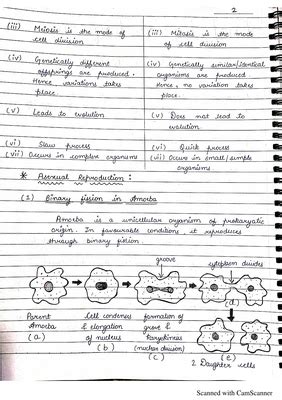 2
(iii) Meiosis is the mode of (iii) Mitosis is the mode
cell division of cell division
(iv) Genetically different (iv) Genetically similar/identical
offsprings are produced. organisms are produced
Hence, variations takes Hence, no variation takes
place. place.
(v) Leads to evolution (v) Does not lead to
evolution
(vi) Slow process (vi) Quick process
(vii) Occurs in complex organisms (vii) Occurs in small/simple
organisms
* Asexual Reproduction:
(1) Binary fission in Amoeba
Amoeba is a unicellular organism of prokaryotic
origin. In favourable conditions, it reproduces
through binary fission
groove cytoplasm divides
(d)
Parent Cell condenses formation of
Amoeba & elongation grove &
(a) of nucleus Karyokinesis
(b) (nuclear division)
(c) (e)
2 Daughter cells
Scanned with CamScanner